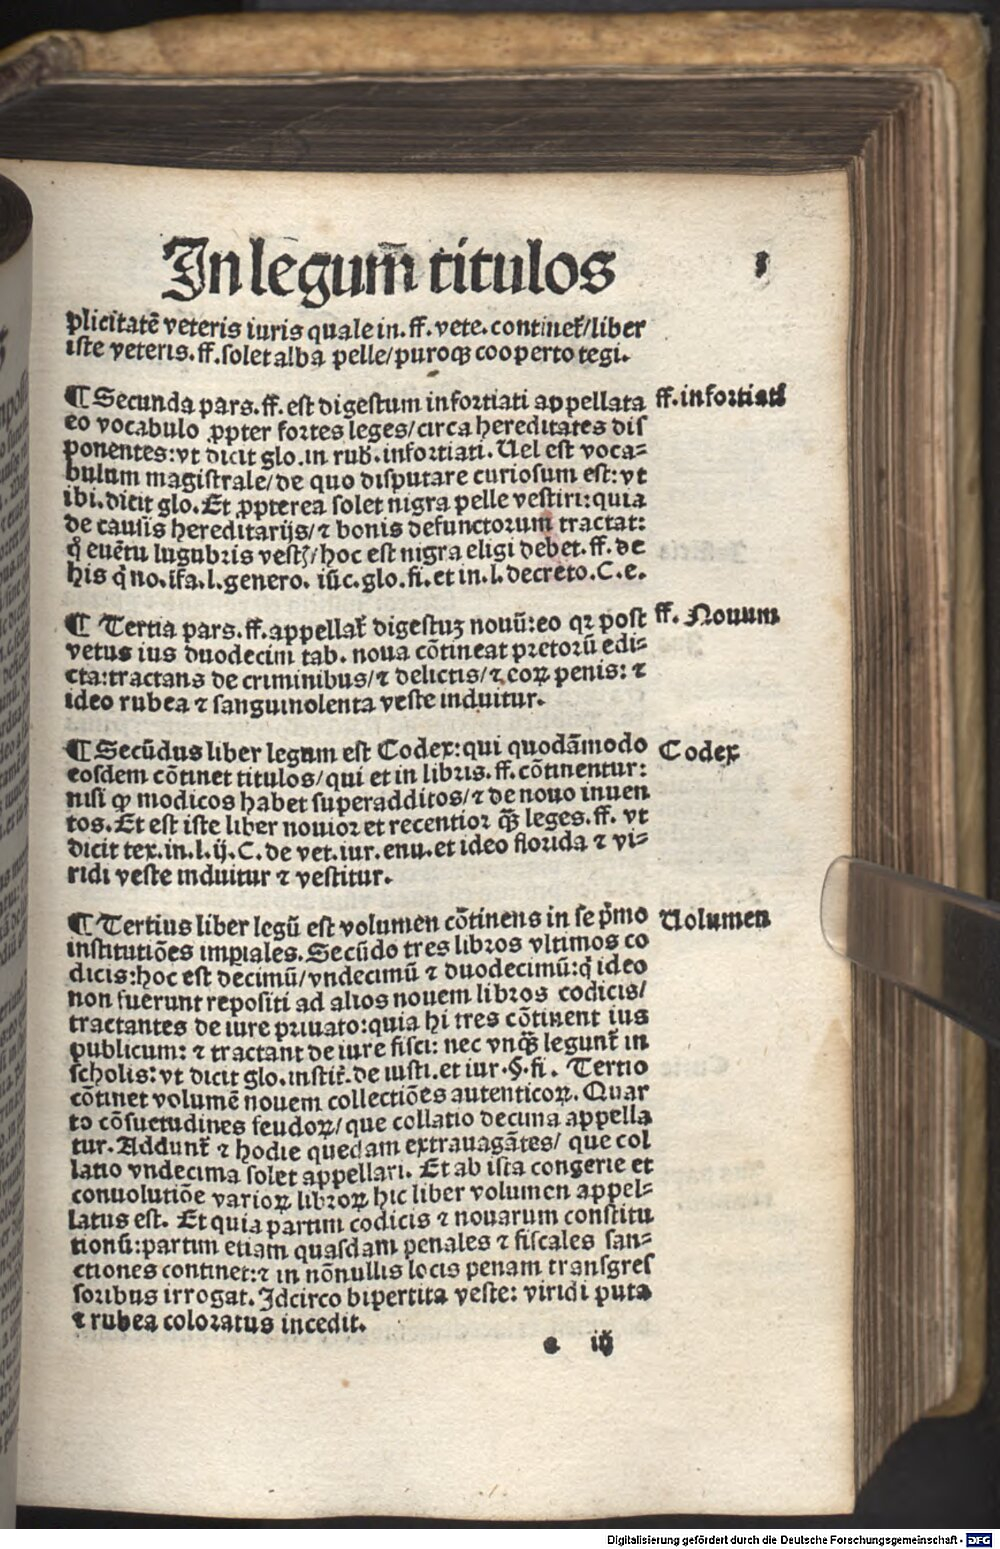 In legum̄ titulos
plicitatē veteris iuris quale in. ff. vete. continet̄/liber
iste veteris. ff. solet alba pelle/puroqꝫ cooperto tegi.
¶ Secunda pars. ff. est digestum infortiati appellata
ff. infortiati
eo vocabulo ꝓpter fortes leges/circa hereditates dis
ponentes: vt dicit glo. in rub. infortiati. Uel est voca⸗
bulum magistrale/de quo disputare curiosum est: vt
ibi. dicit glo. Et ꝓpterea solet nigra pelle vestiri: quia
de causis hereditarijs/⁊ bonis defunctorum tractat:
q̄ euētu lugubris /hoc est nigra eligi debet. ff. de
his q̄ no. īfa. l. genero. iūc. glo. fi. et in. l. decreto. C. e.
¶ Tertia pars. ff. appellat̄ digestuꝫ nouū: eo qꝛ post
ff. Nouum
vetus ius duodecim tab. noua cōtineat pretorū edi⸗
cta: tractans de criminibus/⁊ delictis/⁊ eoꝝ penis: ⁊
ideo rubea ⁊ sanguinolenta veste induitur.
¶ Secūdus liber legum est Codex: qui quodāmodo
Codex
eosdem cōtinet titulos/qui et in libris. ff. cōtinentur:
nisi ꝙ modicos habet superadditos/⁊ de nouo inuen
tos. Et est iste liber nouior et recentior qꝫ̄ leges. ff. vt
dicit tex. in. l. ij. C. de vet. iur. enu. et ideo florida ⁊ vi⸗
ridi veste induitur ⁊ vestitur.
¶ Tertius liber legū est volumen cōtinens in se p̄mo
Uolumen
institutiōes imꝑiales. Secūdo tres libros vltimos co
dicis: hoc est decimū/vndecimū ⁊ duodecimū: q̄ ideo
non fuerunt repositi ad alios nouem libros codicis/
tractantes de iure priuato: quia hi tres cōtinent ius
publicum: ⁊ tractant de iure fisci: nec vnqꝫ̄ legunt̄ in
scholis: vt dicit glo. instit̄. de iusti. et iur. §. fi. Tertio
cōtinet volumē nouem collectiōes autenticoꝝ. Quar
to cōsuetudines feudoꝝ/que collatio decima appella
tur. Addunt̄ ⁊ hodie quedam extrauagātes/ que col
latio vndecima solet appellari. Et ab ista congerie et
conuolutiōe varioꝝ libroꝝ hic liber volumen appel⸗
latus est. Et quia partim codicis ⁊ nouarum constitu
tionū: partim etiam quasdam penales ⁊ fiscales san⸗
ctiones continet: ⁊ in nōnullis locis penam transgres
soribus irrogat. Idcirco bipertita veste: viridi puta
⁊ rubea coloratus incedit.
a iij
Digitalisierung gefördert durch die Deutsche Forschungsgemeinschaft - DFG